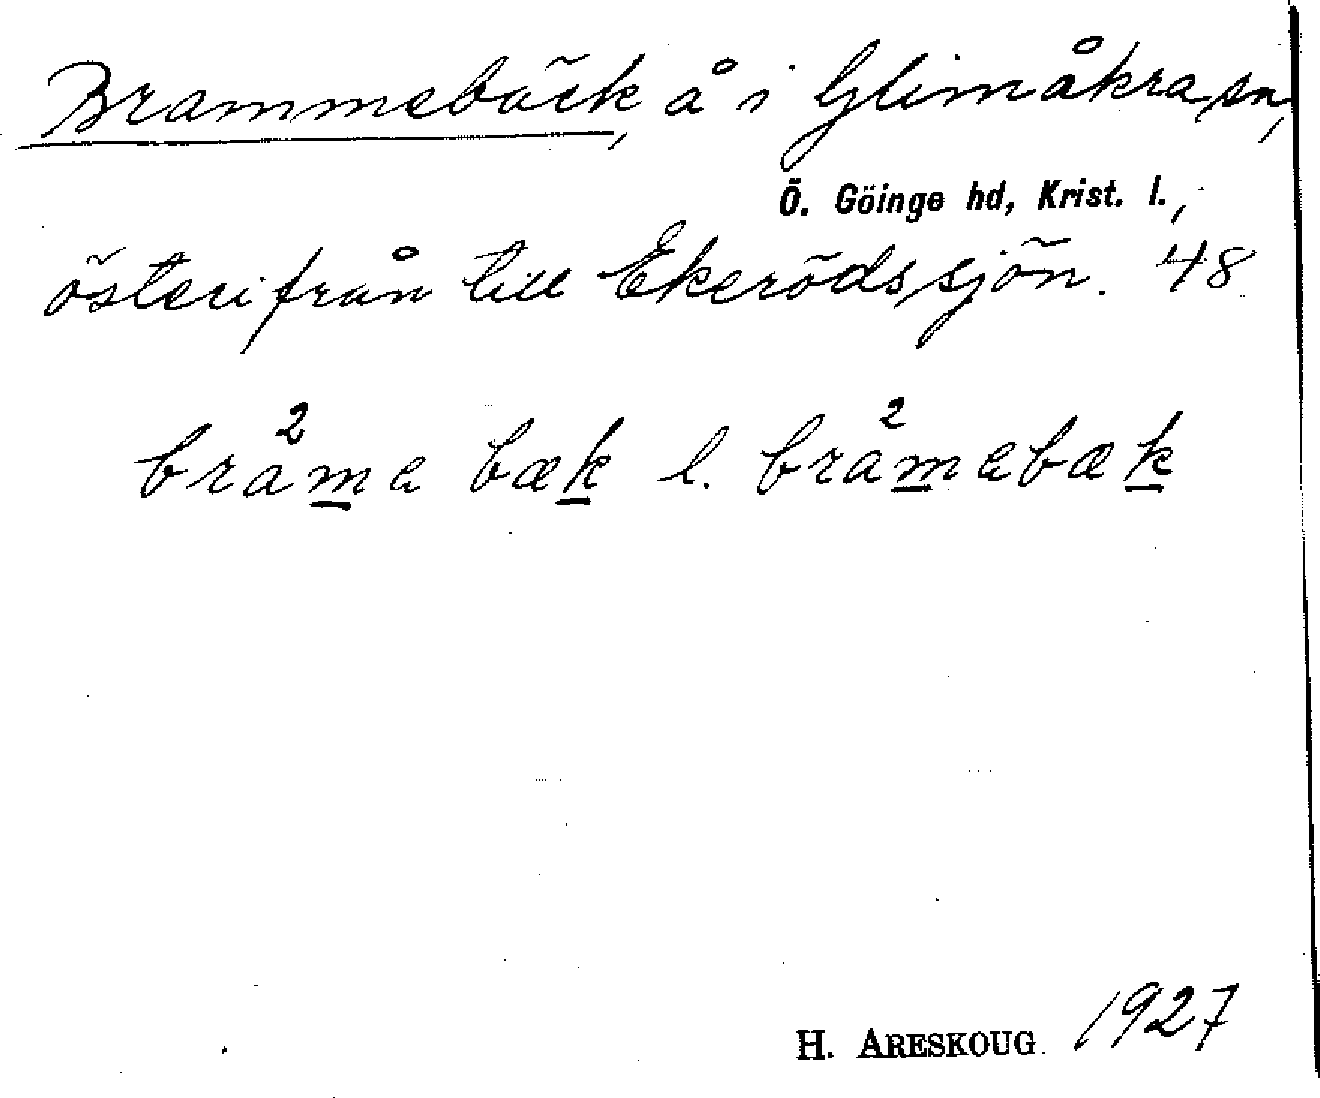 Brammebäck, å i Glimåkra sn,
Ö. Göinge hd, Krist. l.,
österifrån till Ekerödssjön. 48
bra²me bæk l. bra²mebæk
H. ARESKOUG. 1927